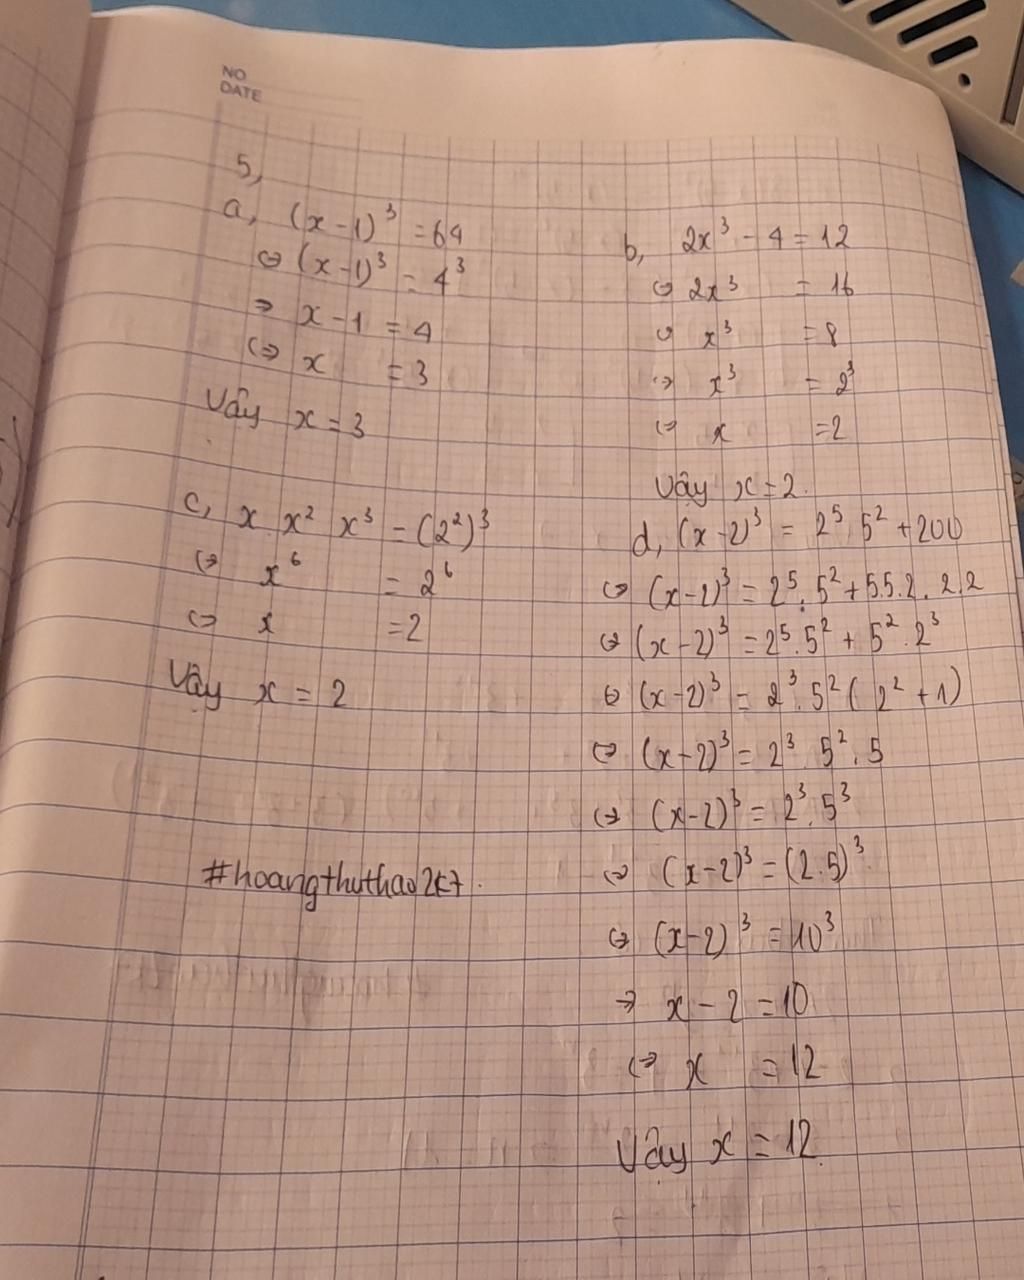 NO
DATE
5,
a, (x-1)³ = 64
⇔ (x-1)³ = 4³
⇒ x-1 = 4
⇔ x = 3
Vậy x = 3
b, 2x³ - 4 = 12
⇔ 2x³ = 16
⇔ x³ = 8
⇔ x³ = 2³
⇔ x = 2
Vậy x = 2.
c, x x² x³ = (2²)³
⇔ x⁶ = 2⁶
⇔ x = 2
Vậy x = 2
d, (x-2)³ = 2⁵. 5² + 200
⇔ (x-2)³ = 2⁵. 5² + 5.5.2.2.2
⇔ (x-2)³ = 2⁵.5² + 5².2³
⇔ (x-2)³ = 2³.5² (2² + 1)
⇔ (x-2)³ = 2³. 5². 5
⇔ (x-2)³ = 2³. 5³
⇔ (x-2)³ = (2.5)³
⇔ (x-2)³ = 10³
⇒ x - 2 = 10
⇔ x = 12
Vậy x = 12.
#hoangthuthao2k7.